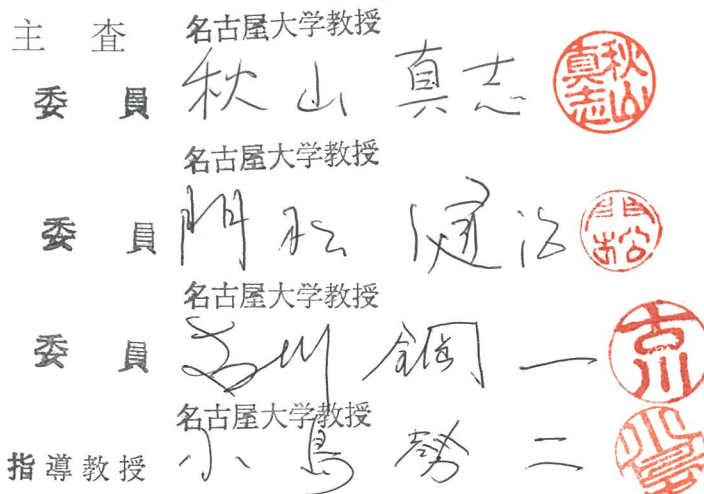 主査 名古屋大学教授
委員 秋山真志 秋山真志
名古屋大学教授
委員 門松健治 門松
名古屋大学教授
委員 古川鋼一 古川
名古屋大学教授
指導教授 小島勢二